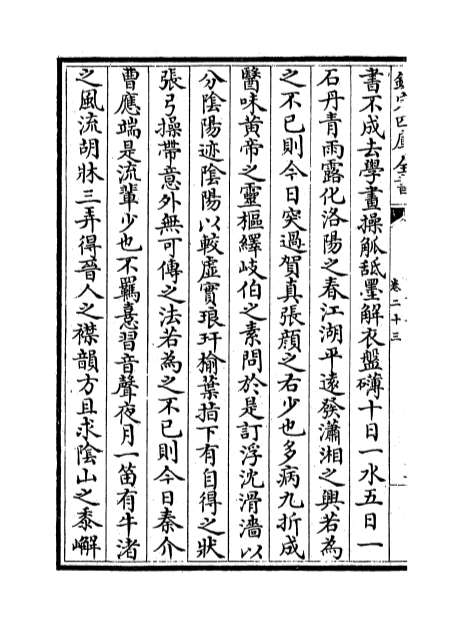 欽定四庫全書
卷二十三
書不成去學畫操觚舐墨解衣盤礴十日一水五日一
石丹青雨露化洛陽之春江湖平遠發瀟湘之興若為
之不已則今日突過賀真張顔之右少也多病九折成
醫味黄帝之靈樞繹岐伯之素問於是訂浮沈滑濇以
分陰陽迹陰陽以較虚實琅玕揄葉指下有自得之狀
張弓操帶意外無可傳之法若為之不已則今日秦介
曹應端是流輩少也不羈憙習音聲夜月一笛有牛渚
之風流胡牀三弄得晉人之襟韻方且求陰山之黍嶰